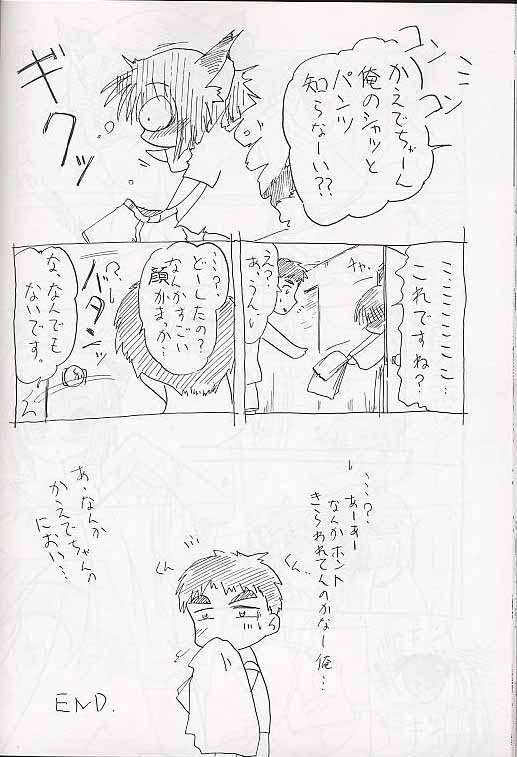 コンコン
かえでちゃーん
俺のシャツと
パンツ
知らなーい??
ギクッ
…………
これですね?
チャ
え?
あ、うん
…?
どーしたの?
なんかすごい
顔がまっか…
バタンッ
?
な、なんでも
ないです。
…?
あーあー
なんかホント
きらわれてんのかなー俺…
くん…
くん
あ、なんか
かえでちゃんの
におい…
END.